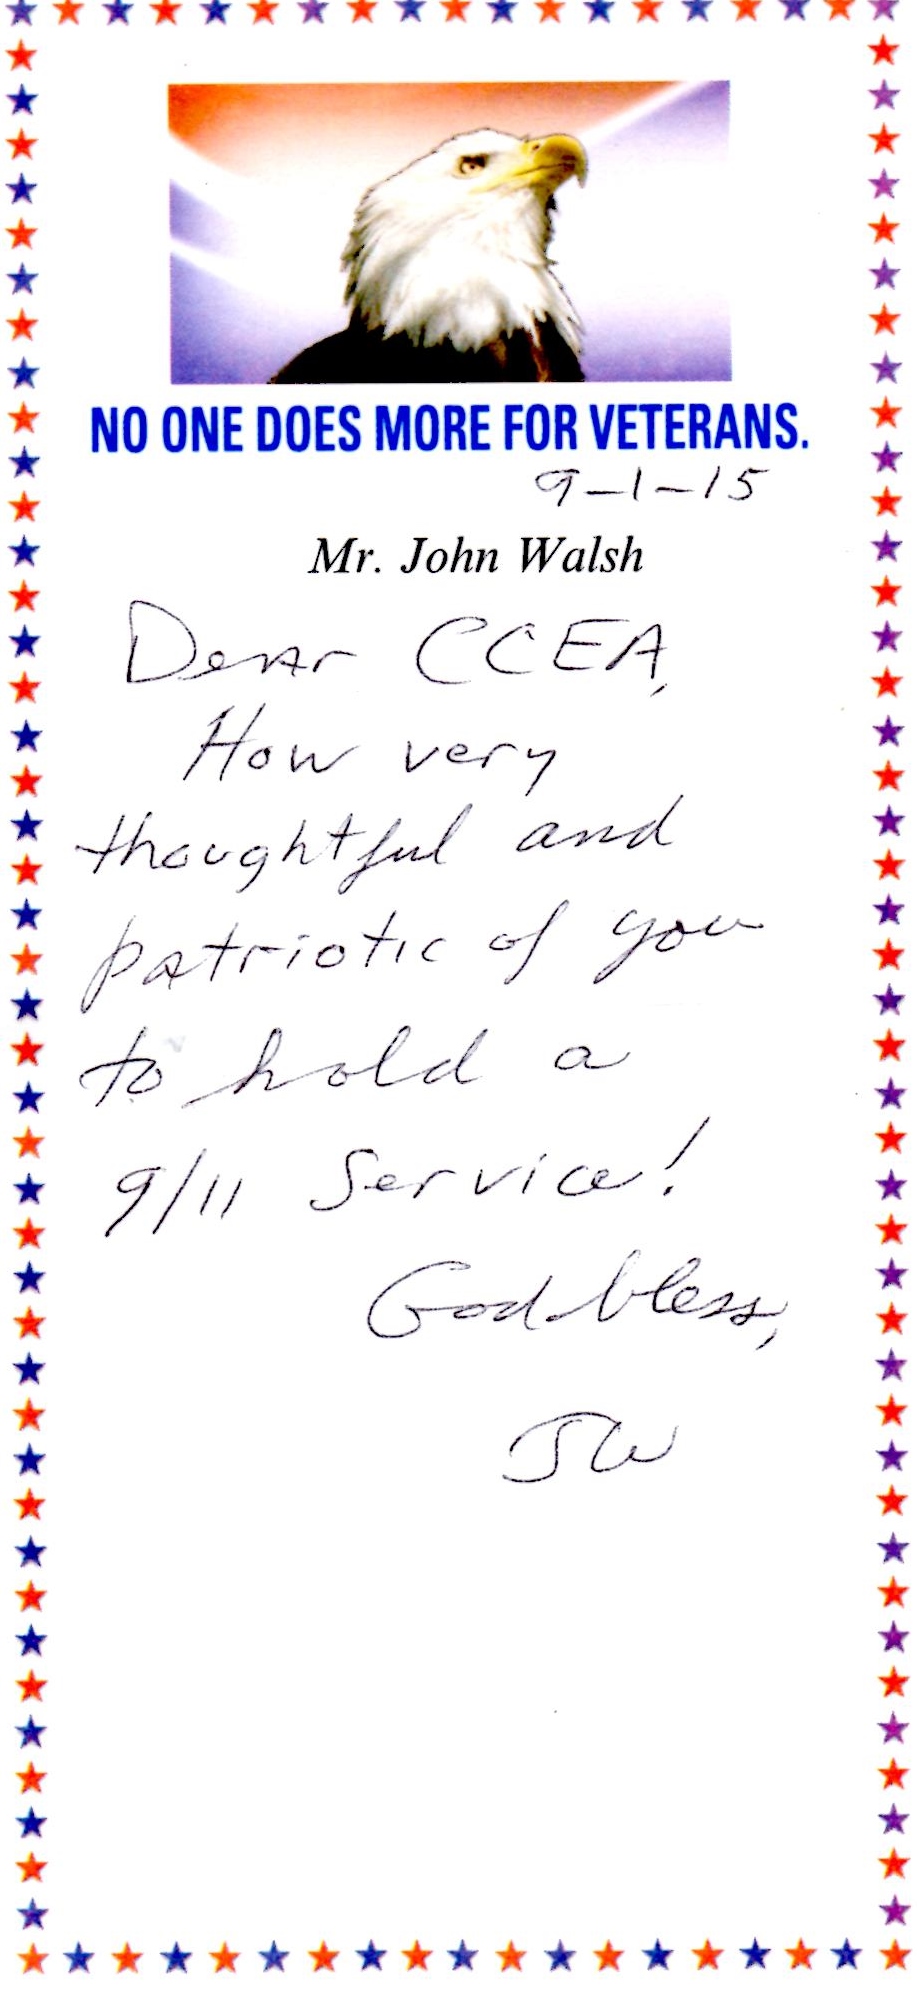 NO ONE DOES MORE FOR VETERANS.
9-1-15
Mr. John Walsh
Dear CCEA,
How very
thoughtful and
patriotic of you
to hold a
9/11 Service!
God bless,
JW